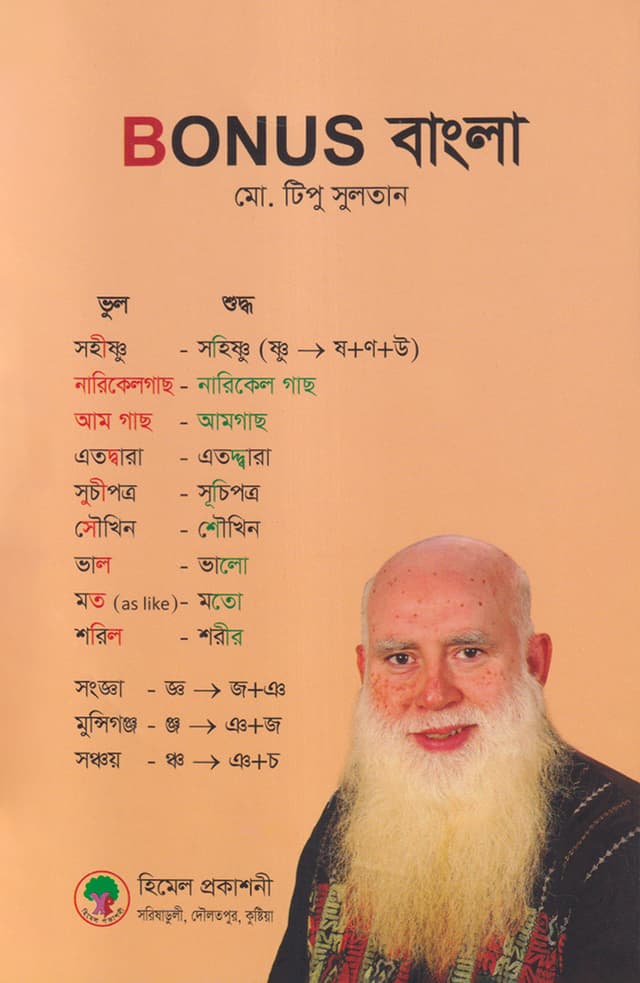 BONUS বাংলা
মো. টিপু সুলতান
ভুল শুদ্ধ
সহীষ্ণু - সহিষ্ণু (ষ্ণু → ষ+ণ+উ)
নারিকেলগাছ - নারিকেল গাছ
আম গাছ - আমগাছ
এতদ্বারা - এতদ্দ্বারা
সুচীপত্র - সূচিপত্র
সৌখিন - শৌখিন
ভাল - ভালো
মত (as like) - মতো
শরিল - শরীর
সংজ্ঞা - জ্ঞ → জ+ঞ
মুন্সিগঞ্জ - ঞ্জ → ঞ+জ
সঞ্চয় - ঞ্চ → ঞ+চ
হিমেল প্রকাশনী
হিমেল প্রকাশনী
সরিষাডুলী, দৌলতপুর, কুষ্টিয়া